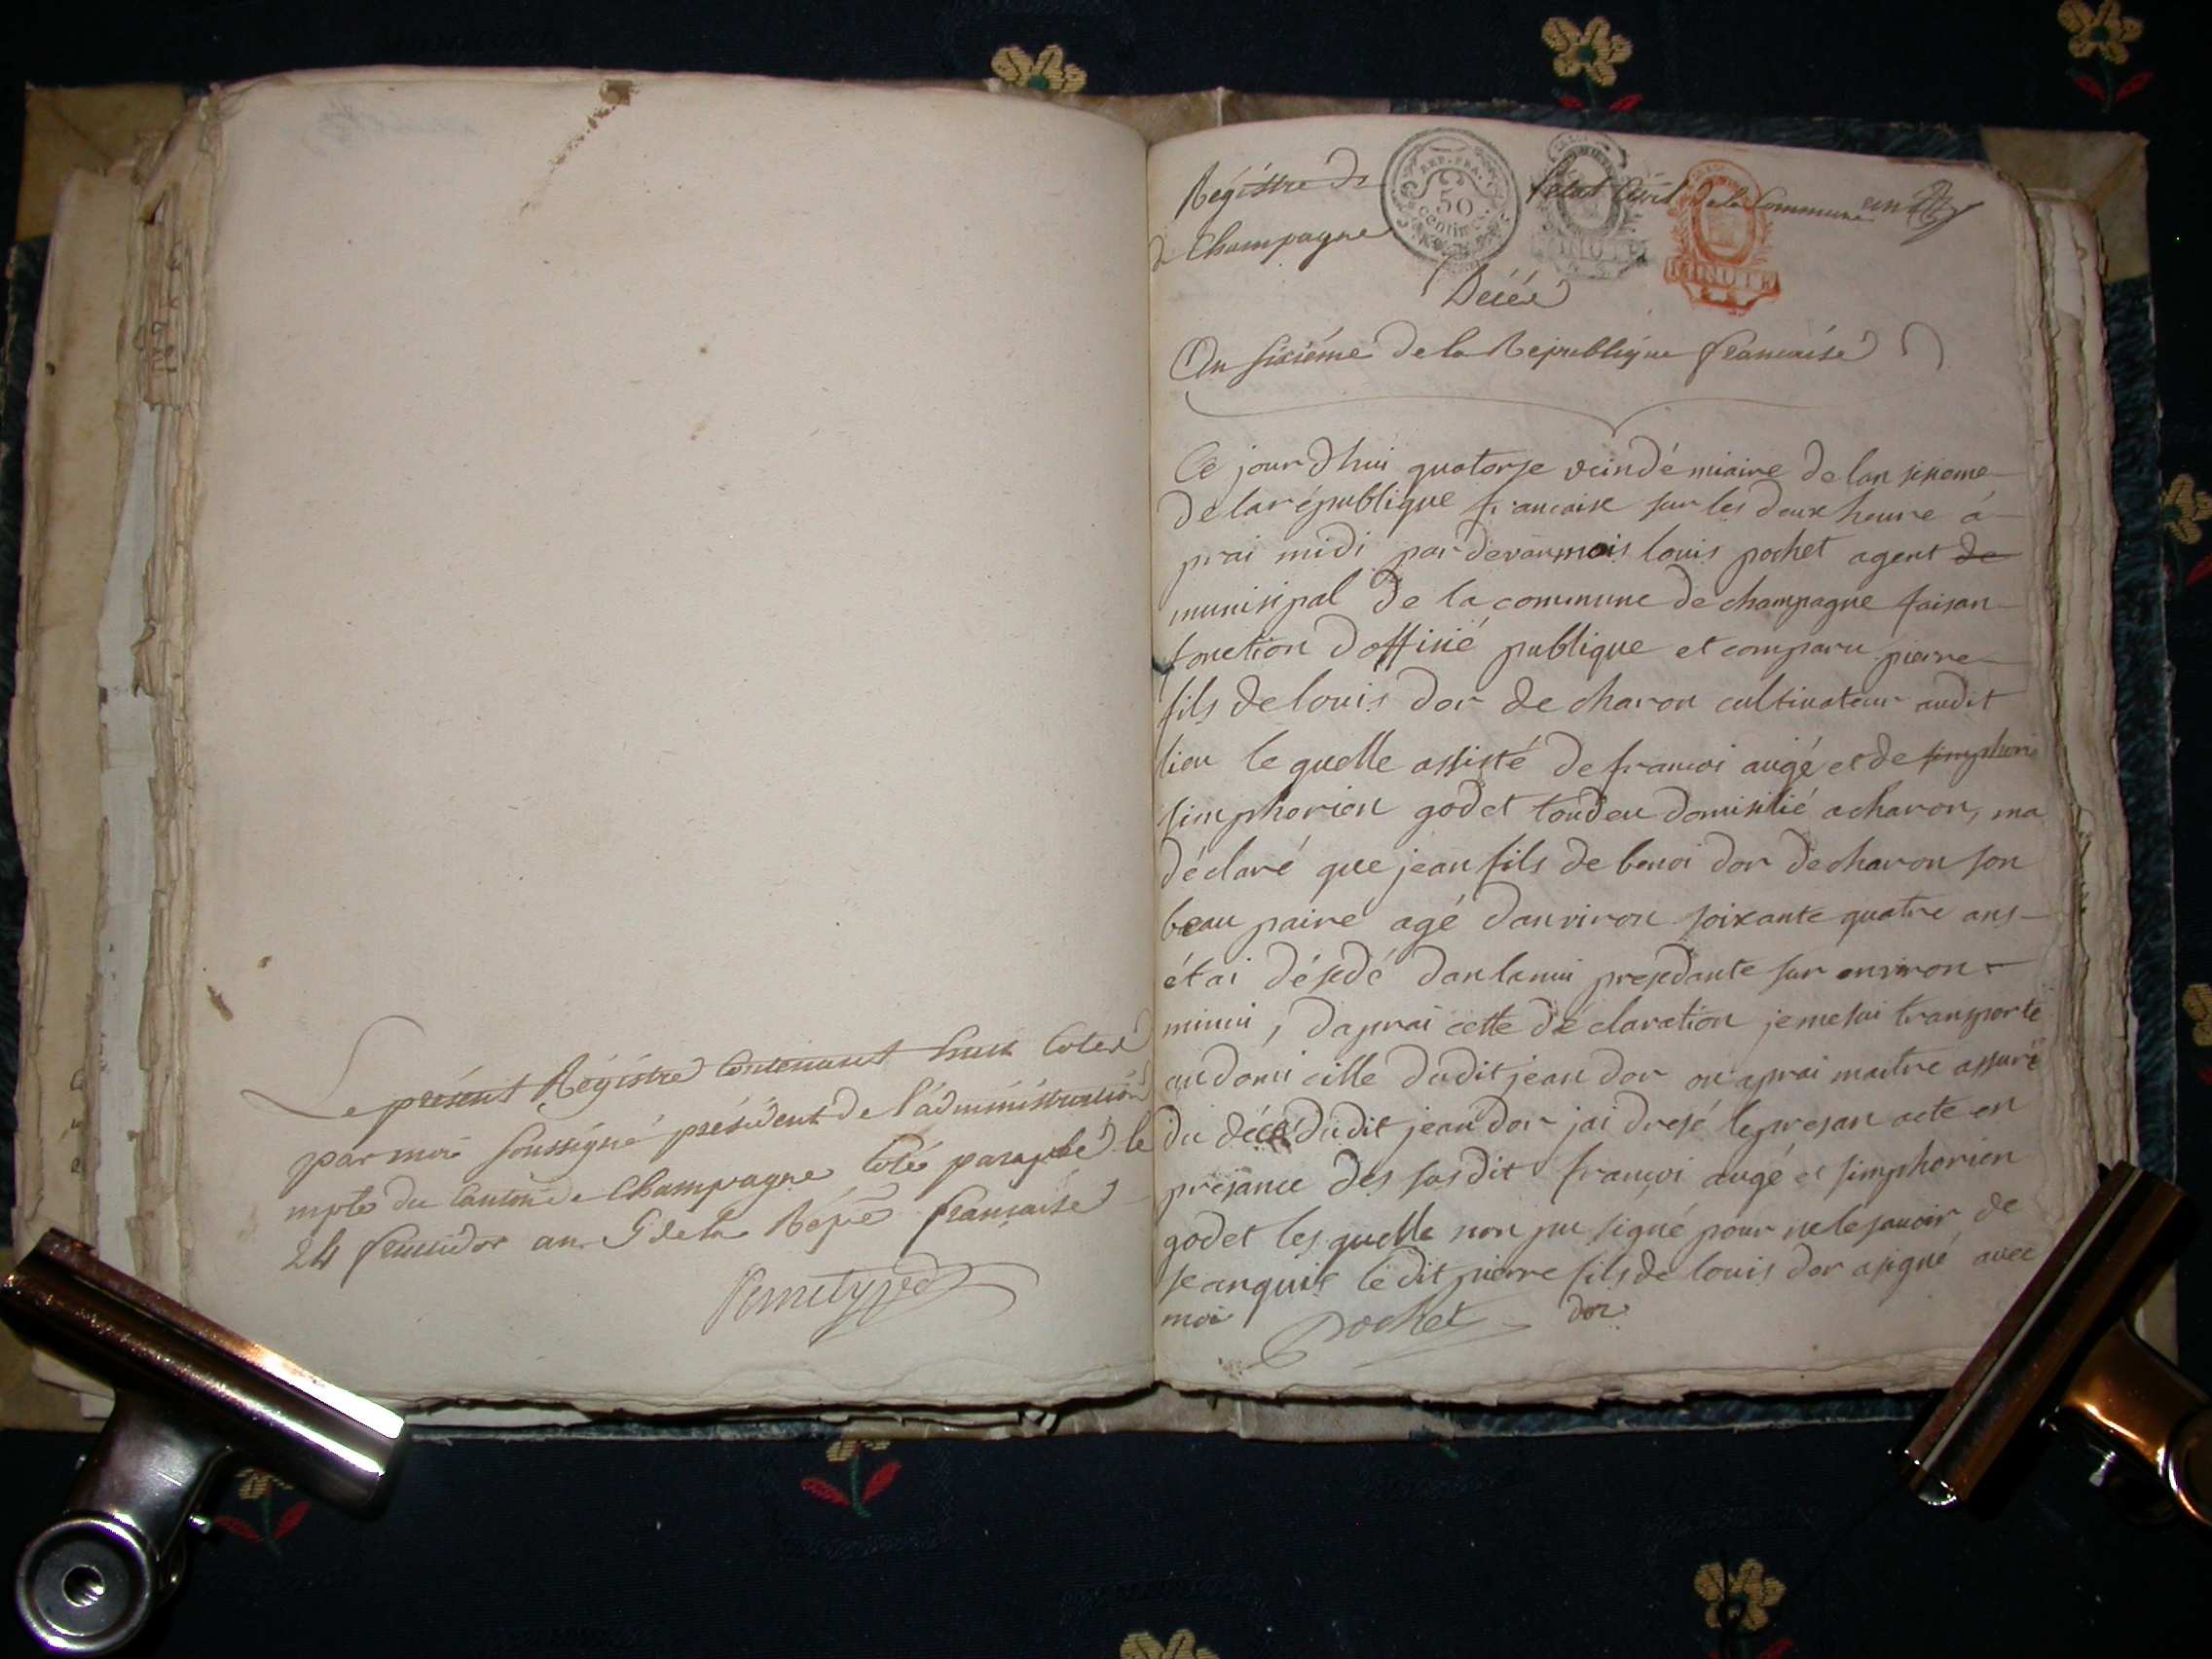 Le présent Régistre Contenant huit Cotes
par moi soussigné président de l'administration
mple du Canton de Champagne Coté paraphé le
24 fructidor an 5 de la Répe. française
Régistre de l'etat Civil de la Commune un
de Champagne
REP. FRA.
50
centim.
MINUTE
MINUTE
Décés
An sixiéme de la Republique francaise
Ce jour dhui quatorse veindémiaire de lan sisieme
de la république francaise sur les deux heure a
prai midi par devanmois louis pochet agent de
munisipal de la commune de champagne faisan
fonction doffisié publique et comparu pierre
fils de louis dor de charon cultivateur audit
lieu le quelle assisté de francoi augé et de simphori
simphorien godet toudeu domisilié a charon, ma
déclaré que jean fils de benoi dor de charon son
beau paire agé danviron soixante quatre ans
étai désedé dan lanui presedante sur environ
minui, daprai cette déclaration je me sui transporté
au domi cille dudit jean dor ou aprai maitre assuré
du décé dudit jean dor jai dresé le presan acte en
presance des susdit françoi augé et simphorien
godet les quelle non pu signé pour ne le savoir de
se anquis le dit pierre fils de louis dor a signé avec
moi
pochet dor